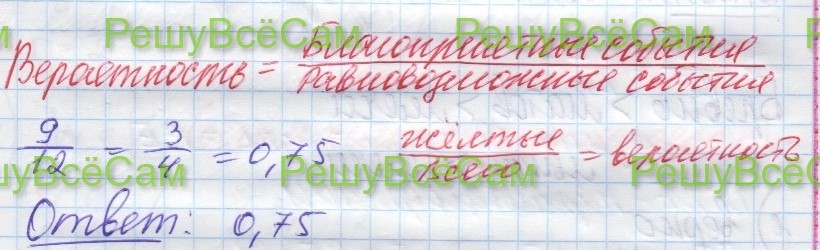 РешуВсёСам РешуВсёСам
Вероятность = Благоприятные события / равновозможные события
9/12 = 3/4 = 0,75 жёлтые / всего = вероятность
РешуВсёСам РешуВсёСам РешуВсёСам
Ответ: 0,75